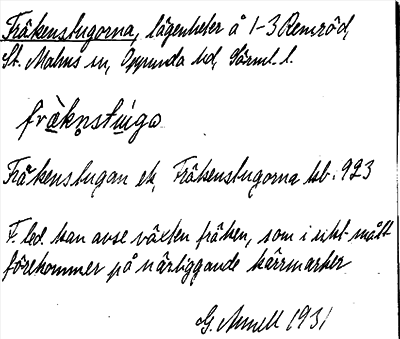 Fräkenstugorna, lägenheter å 1-3 Remröd,
St. Malms sn, Oppunda hd, Sörml. l.
fräkṇstuga
Fräkenstugan ek, Fräkenstugorna hb. 923
F. led kan avse växten fräken, som i rikt mått
förekommer på närliggande kärrmarker
G. Arnell 1931